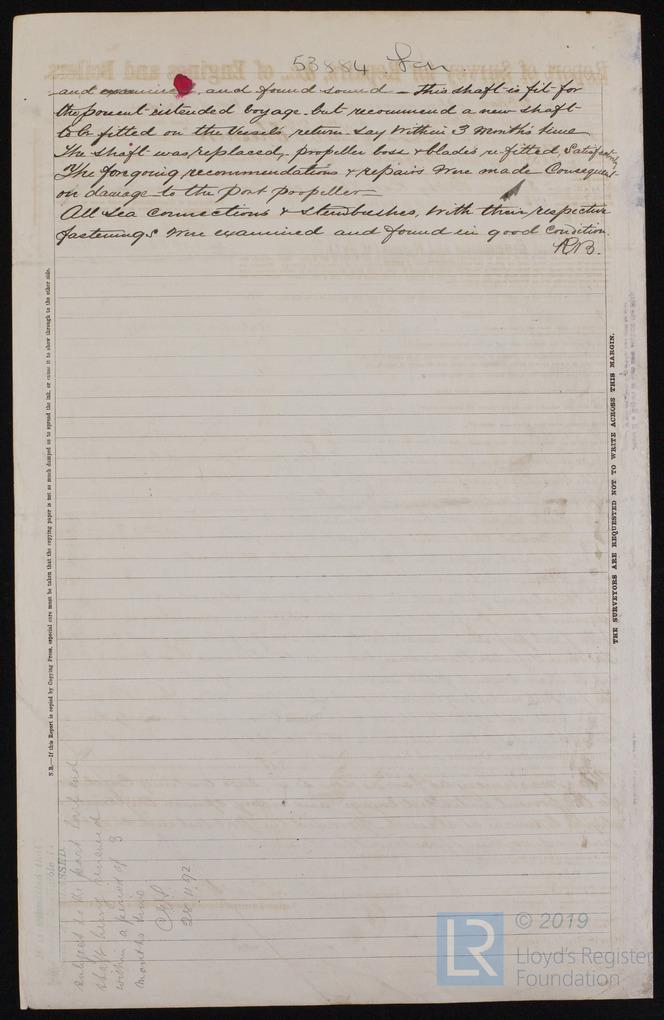 53884 Lon
and examined, and found sound - This shaft is fit for
the present intended voyage. but recommend a new shaft
to be fitted on the Vessels return say within 3 months time
The shaft was replaced, propeller boss & blades re-fitted Satisfactorily
The foregoing recommendations & repairs were made Consequent
on damage to the port propeller
All Sea Connections & sternbushes, with their respective
fastenings were examined and found in good Condition
RB.
N.B.—If this Report is copied by Copying Press, especial care must be taken that the copying paper is not so much damped as to spread the ink, or cause it to show through to the other side.
THE SURVEYORS ARE REQUESTED NOT TO WRITE ACROSS THIS MARGIN.
subject to the port tail end
shaft being renewed
within a period of 3
months time
28.11.92
© 2019
LR
Lloyd's Register
Foundation